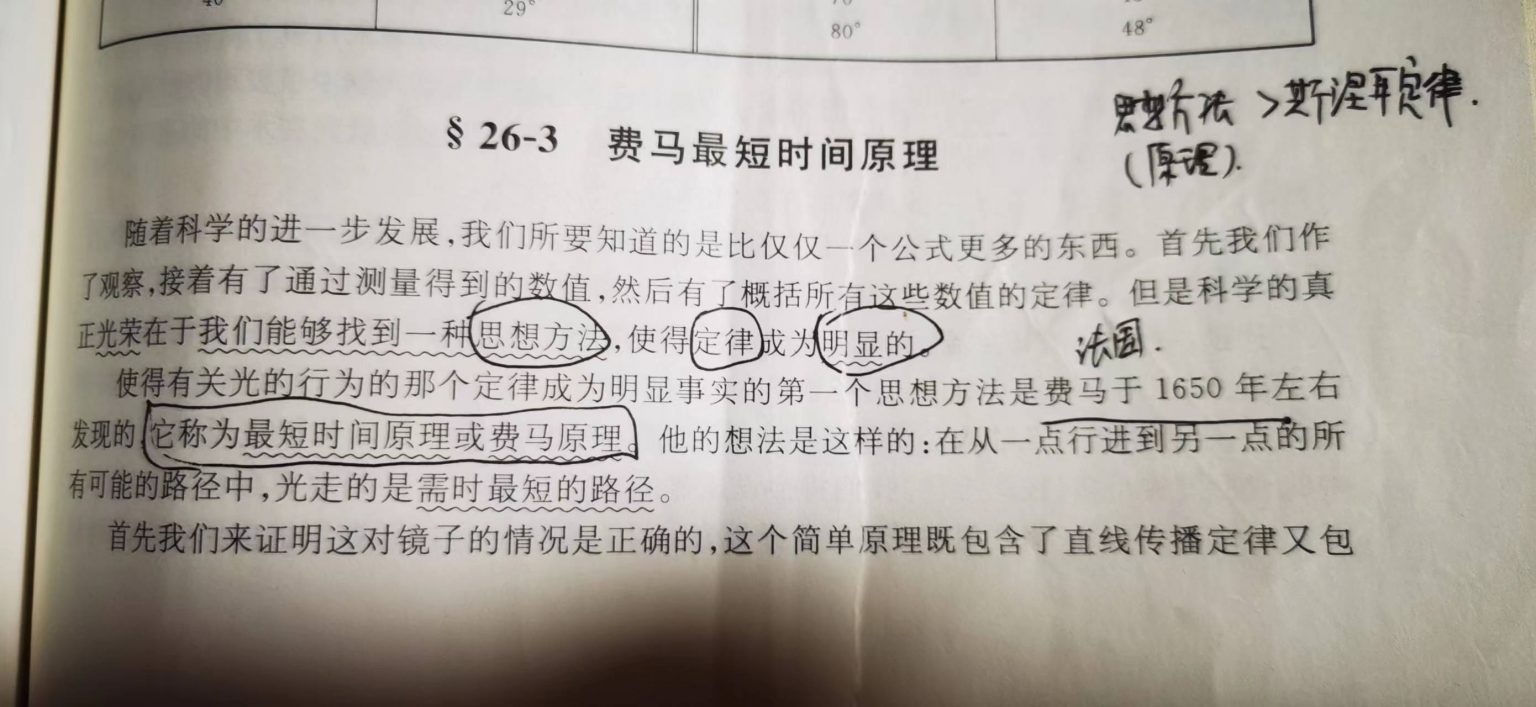 29°
80°
48°
思想方法 > 斯涅耳定律.
(原理).
§ 26-3 费马最短时间原理
随着科学的进一步发展,我们所要知道的是比仅仅一个公式更多的东西。首先我们作
了观察,接着有了通过测量得到的数值,然后有了概括所有这些数值的定律。但是科学的真
正光荣在于我们能够找到一种思想方法,使得定律成为明显的。
法国.
使得有关光的行为的那个定律成为明显事实的第一个思想方法是费马于 1650 年左右
发现的,它称为最短时间原理或费马原理。他的想法是这样的:在从一点行进到另一点的所
有可能的路径中,光走的是需时最短的路径。
首先我们来证明这对镜子的情况是正确的,这个简单原理既包含了直线传播定律又包